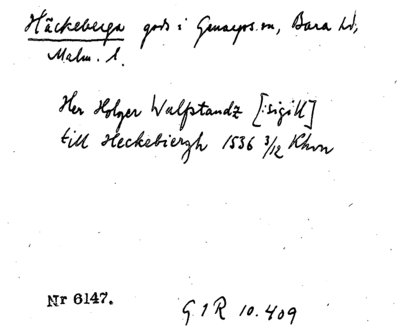 Häckeberga gods i Genarps sn, Bara hd,
Malm. l.
Her Holger Walpstandz [:sigill]
till Heckebiergh 1536 3/12 Khvn
Nr 6147.
G I R 10.409